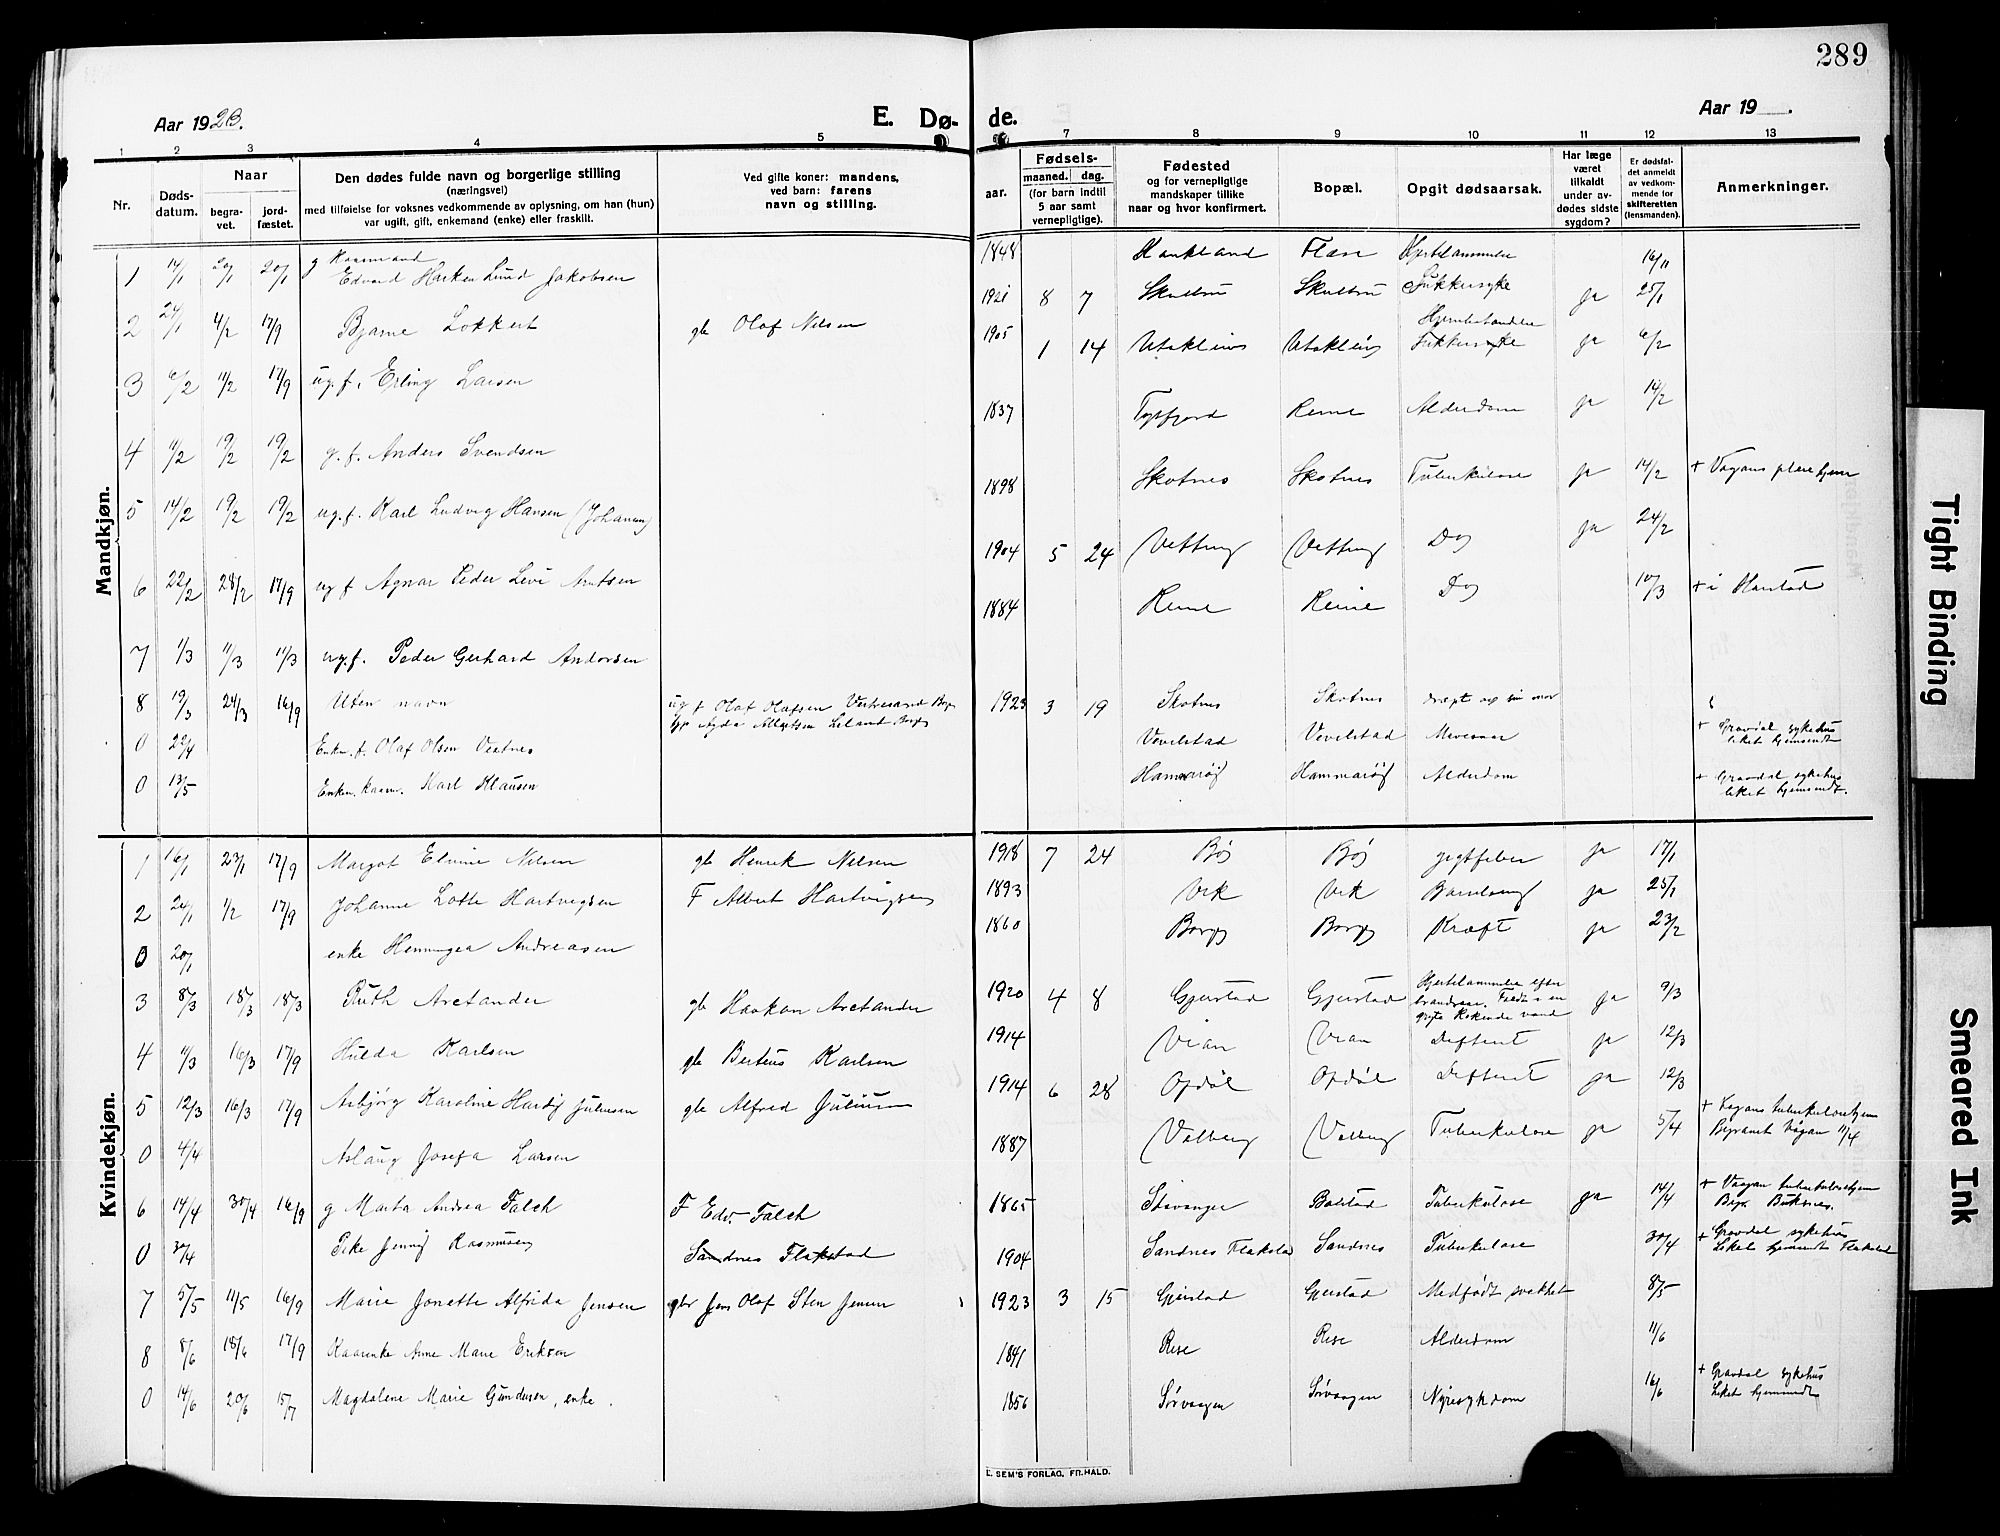 289
Aar 1923.
E. Dø-
de.
Aar 19 .
1 2 3 4 5
7 8 9 10 11 12 13
Nr.
Døds-
datum.
Naar
begra-
vet.
jord-
fæstet.
Den dødes fulde navn og borgerlige stilling
(næringsvei)
med tilføielse for voksnes vedkommende av oplysning, om han (hun)
var ugift, gift, enkemand (enke) eller fraskilt.
Ved gifte koner: mandens,
ved barn: farens
navn og stilling.
aar.
Fødsels-
maaned. dag.
(for barn indtil
5 aar samt
vernepligtige).
Fødested
og for vernepligtige
mandskaper tillike
naar og hvor konfirmert.
Bopæl.
Opgit dødsaarsak.
Har læge
været
tilkaldt
under av-
dødes sidste
sygdom?
Er dødsfal-
det anmeldt
av vedkom-
mende for
skifteretten
(lensmanden).
Anmerkninger.
Mandkjøn.
1 14/1 20/1 20/1 g Kaarmand
Edvard Hartken Lund Jakobsen 1848 Haukland Flæse Hjertelammelse 16/11
2 24/1 4/2 17/9 Bjarne Lokkert gb Olaf Nilsen 1921 8 7 Skulbru Skulbru Sukkersyke ja 25/1
3 6/2 11/2 17/9 ug. f. Erling Larsen 1905 1 14 Utakleiv Utakleiv Hjernebetændelse
Sukkersyke ja 6/2
4 11/2 19/2 19/2 g. f. Anders Svendsen 1837 Topfjord Reine Alderdom ja 14/2
5 14/2 19/2 19/2 ug. f. Karl Ludvig Hansen (Johansen) 1898 Skotnes Skotnes Tuberkulose ja 14/2 + Vagans pleiehjem
6 22/2 28/2 17/9 ug f Agnar Peder Levi Arntsen 1904 5 24 Vetting Vetting Do ja 24/2
7 1/3 11/3 11/3 ug. f. Peder Gerhard Andorsen 1884 Reine Reine Do 10/3 + i Harstad
8 19/3 24/3 16/9 Uten navn ug f Olaf Olafsen Vestresand Borge
Agda Albertsen Leland Borge 1923 3 19 Skotnes Skotnes dræpt av sin mor
0 22/4 Enkm. f. Olaf Olsen Vestnes Vevelstad Vevelstad Mavesaar + Gravdal sykehus
liket hjemsendt
0 13/5 Enkm. kaarm. Karl Klausen Hammarøy Hammarøy Alderdom + Gravdal sykehus
liket hjemsendt.
Kvindekjøn.
1 16/1 23/1 17/9 Margot Elvine Nilsen gb Henrik Nilsen 1918 7 24 Bø Bø gigtfeber ja 17/1
2 24/1 1/2 17/9 Johanne Lotte Hartvigsen F Albert Hartvigsen 1893 Vik Vik Barselseng ja 25/1
0 20/1 enke Henningea Andreasen 1860 Borge Borge Kræft ja 23/2
3 8/3 18/3 18/3 Ruth Arctander gb Haakon Arctander 1920 4 8 Gjerstad Gjerstad Hjertelammelse efter
brandsaar. Faldt i en
gryte kokende vand ja 9/3
4 11/3 16/3 17/9 Hulda Karlsen gb Berteus Karlsen 1914 Vian Vian Difterit ja 12/3
5 12/3 16/3 17/9 Asbjørg Karoline Hardy Juliussen gb Alfred Juliussen 1914 6 28 Opdøl Opdøl Difterit ja 12/3
0 4/4 Aslaug Josefa Larsen 1887 Valberg Valberg Tuberkulose ja 5/4 + Vagans tuberkulosehjem
Begravet Vågan 11/4
6 14/4 30/4 16/9 g Marta Andrea Falch F Edv. Falch 1865 Stavanger Bolstad Tuberkulose ja 14/4 + Vaagan tuberkulosehjem
Begr. Buksnes.
0 30/4 Pike Jenny Rasmussen Sandnes Flakstad 1904 Sandnes Flakstad Sandnes Tuberkulose 30/4 + Gravdal sykehus
Liket hjemsendt Flakstad
7 5/5 11/5 16/9 Marie Jonette Alfrida Jensen gbr Jens Olaf Sten Jensen 1923 3 15 Gjerstad Gjerstad Medfødt svakhet 8/5
8 8/6 18/6 17/9 Kaarenke Anne Marie Erikson 1841 Rise Rise Alderdom 11/6
0 14/6 20/6 15/7 Magdalene Marie Gundersen, enke. 1856 Sørvaagen Sørvaagen Nyresykdom 16/6 + Gravdal sykehus
Liket hjemsendt
E. SEM'S FORLAG, FR.HALD.
Tight Binding
Smeared Ink